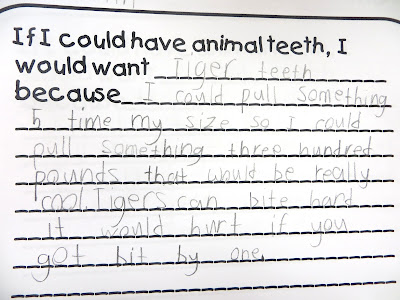 If I could have animal teeth, I
would want Tiger teeth
because I could pull something
5 time my size so I could
pull something three hundred
pounds that would be really
cool. Tigers can bite hard
it would hurt if you
got bit by one.